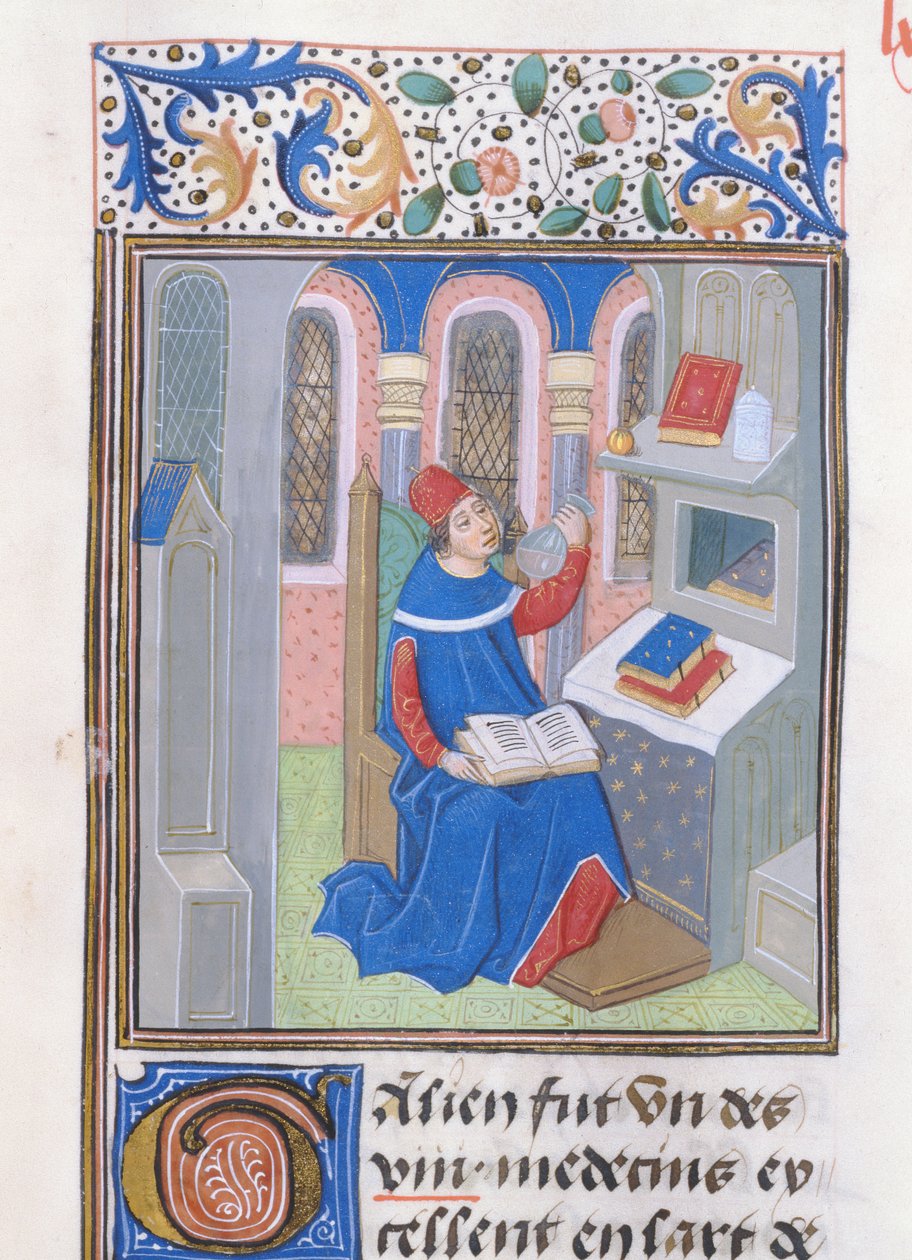 Galien fut vn des
viii· medecins ex
cellent en lart de